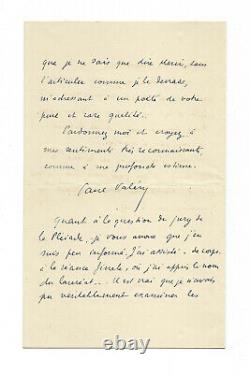 que je ne sais que dire Merci, sans
l'articuler comme je le devrais,
m'adressant à un poëte de votre
pure et rare qualité.
Pardonnez moi et croyez à
mes sentiments très reconnaissants,
comme à ma profonde estime.
Paul Valéry
Quant à la question du jury de
la Pléiade, je vous avoue que j'en
suis peu informé. J'ai assisté de corps
à la séance finale, où j'ai appris le nom
du lauréat... Il est vrai que je n'avais
pu véritablement examiner les
withCOLLECTION.COM